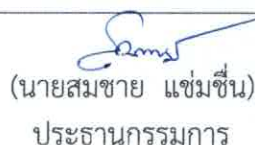 (นายสมชาย แช่มชื่น)
ประธานกรรมการ